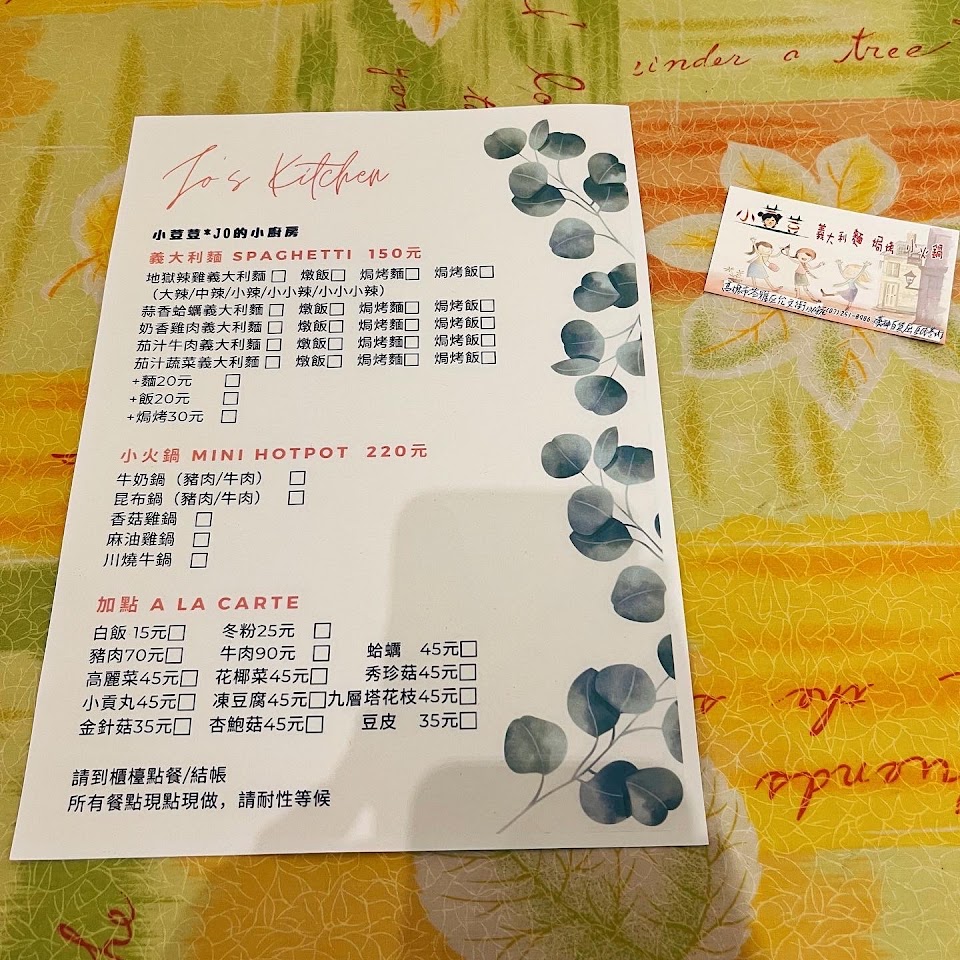 Jo's Kitchen
小荳荳*JO的小廚房
義大利麵 SPAGHETTI 150元
地獄辣雞義大利麵□ 燉飯□ 焗烤麵□ 焗烤飯□
(大辣/中辣/小辣/小小辣/小小小辣)
蒜香蛤蠣義大利麵□ 燉飯□ 焗烤麵□ 焗烤飯□
奶香雞肉義大利麵□ 燉飯□ 焗烤麵□ 焗烤飯□
茄汁牛肉義大利麵□ 燉飯□ 焗烤麵□ 焗烤飯□
茄汁蔬菜義大利麵□ 燉飯□ 焗烤麵□ 焗烤飯□
+麵20元 □
+飯20元 □
+焗烤30元 □
小火鍋 MINI HOTPOT 220元
牛奶鍋 (豬肉/牛肉) □
昆布鍋 (豬肉/牛肉) □
香菇雞鍋 □
麻油雞鍋 □
川燒牛鍋 □
加點 A LA CARTE
白飯 15元□ 冬粉25元 □
豬肉70元□ 牛肉90元 □ 蛤蠣 45元□
高麗菜45元□ 花椰菜45元□ 秀珍菇45元□
小貢丸45元□ 凍豆腐45元□九層塔花枝45元□
金針菇35元□ 杏鮑菇45元□ 豆皮 35元□
請到櫃檯點餐/結帳
所有餐點現點現做，請耐性等候
小荳荳 義大利麵 焗烤 小火鍋
a tree
the